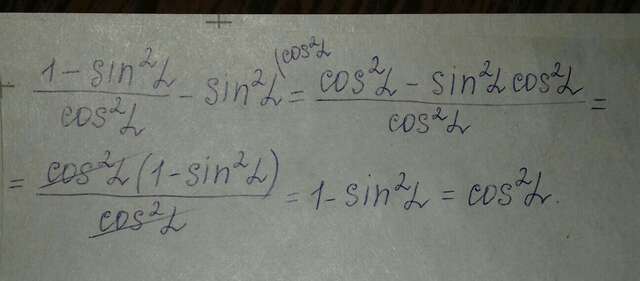 (1 - sin²α)/cos²α - sin²α (cos²α = (cos²α - sin²α cos²α)/cos²α =
= cos²α (1 - sin²α)/cos²α = 1 - sin²α = cos²α.